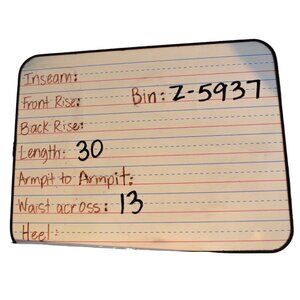 Inseam:
Front Rise:
Bin: Z-5937
Back Rise:
Length: 30
Armpit to Armpit:
Waist across: 13
Heel: